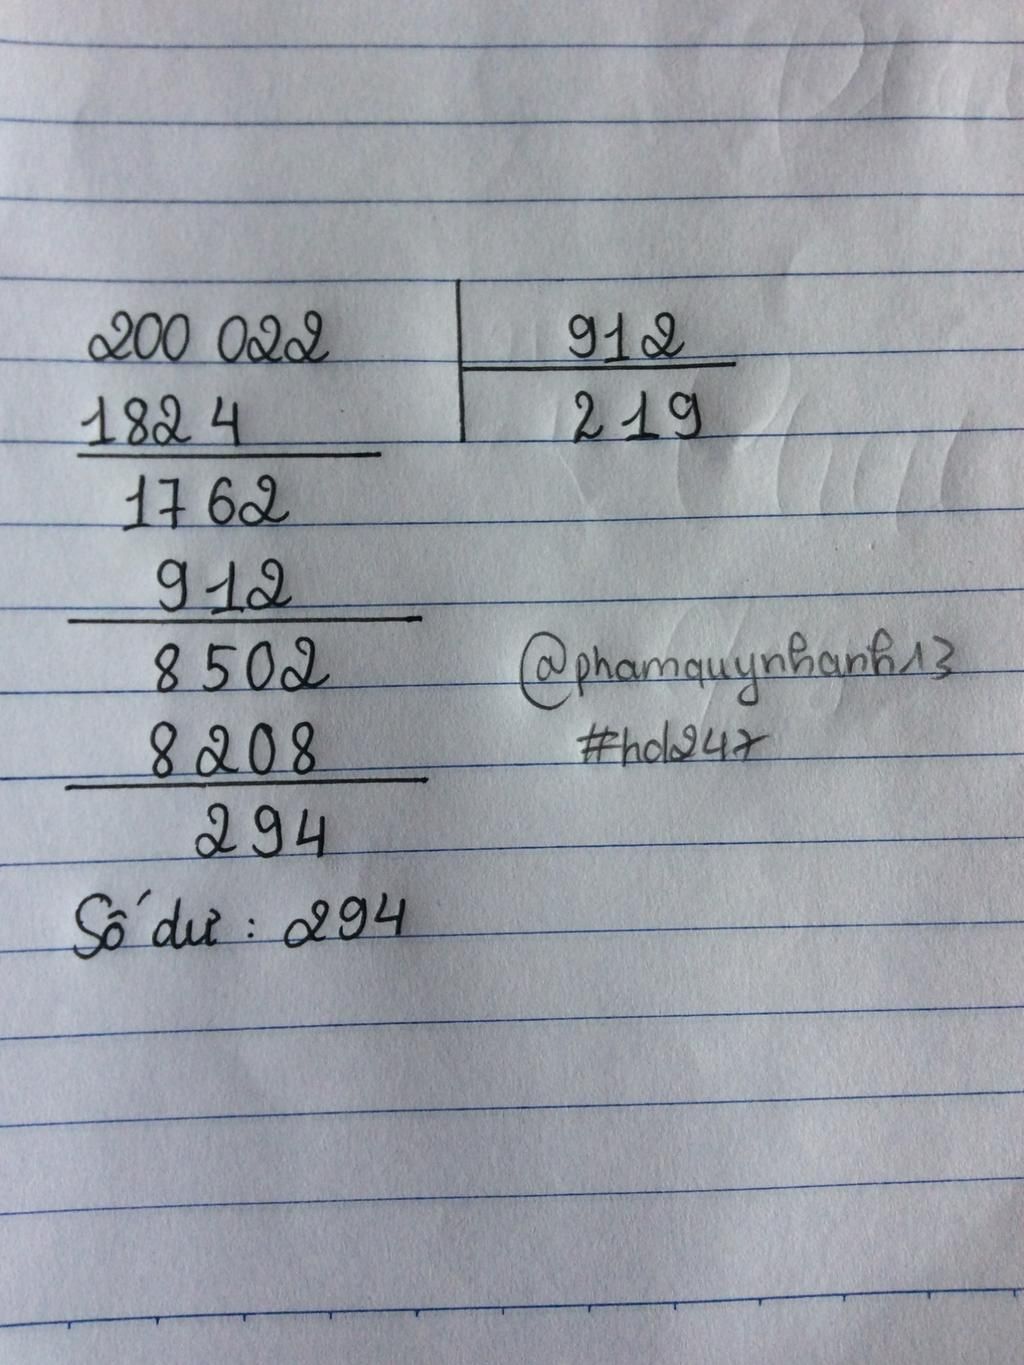 200 022 912
1824 219
1762
912
8502
8208
294
Số dư : 294
@phamquynhanh13
#hd247